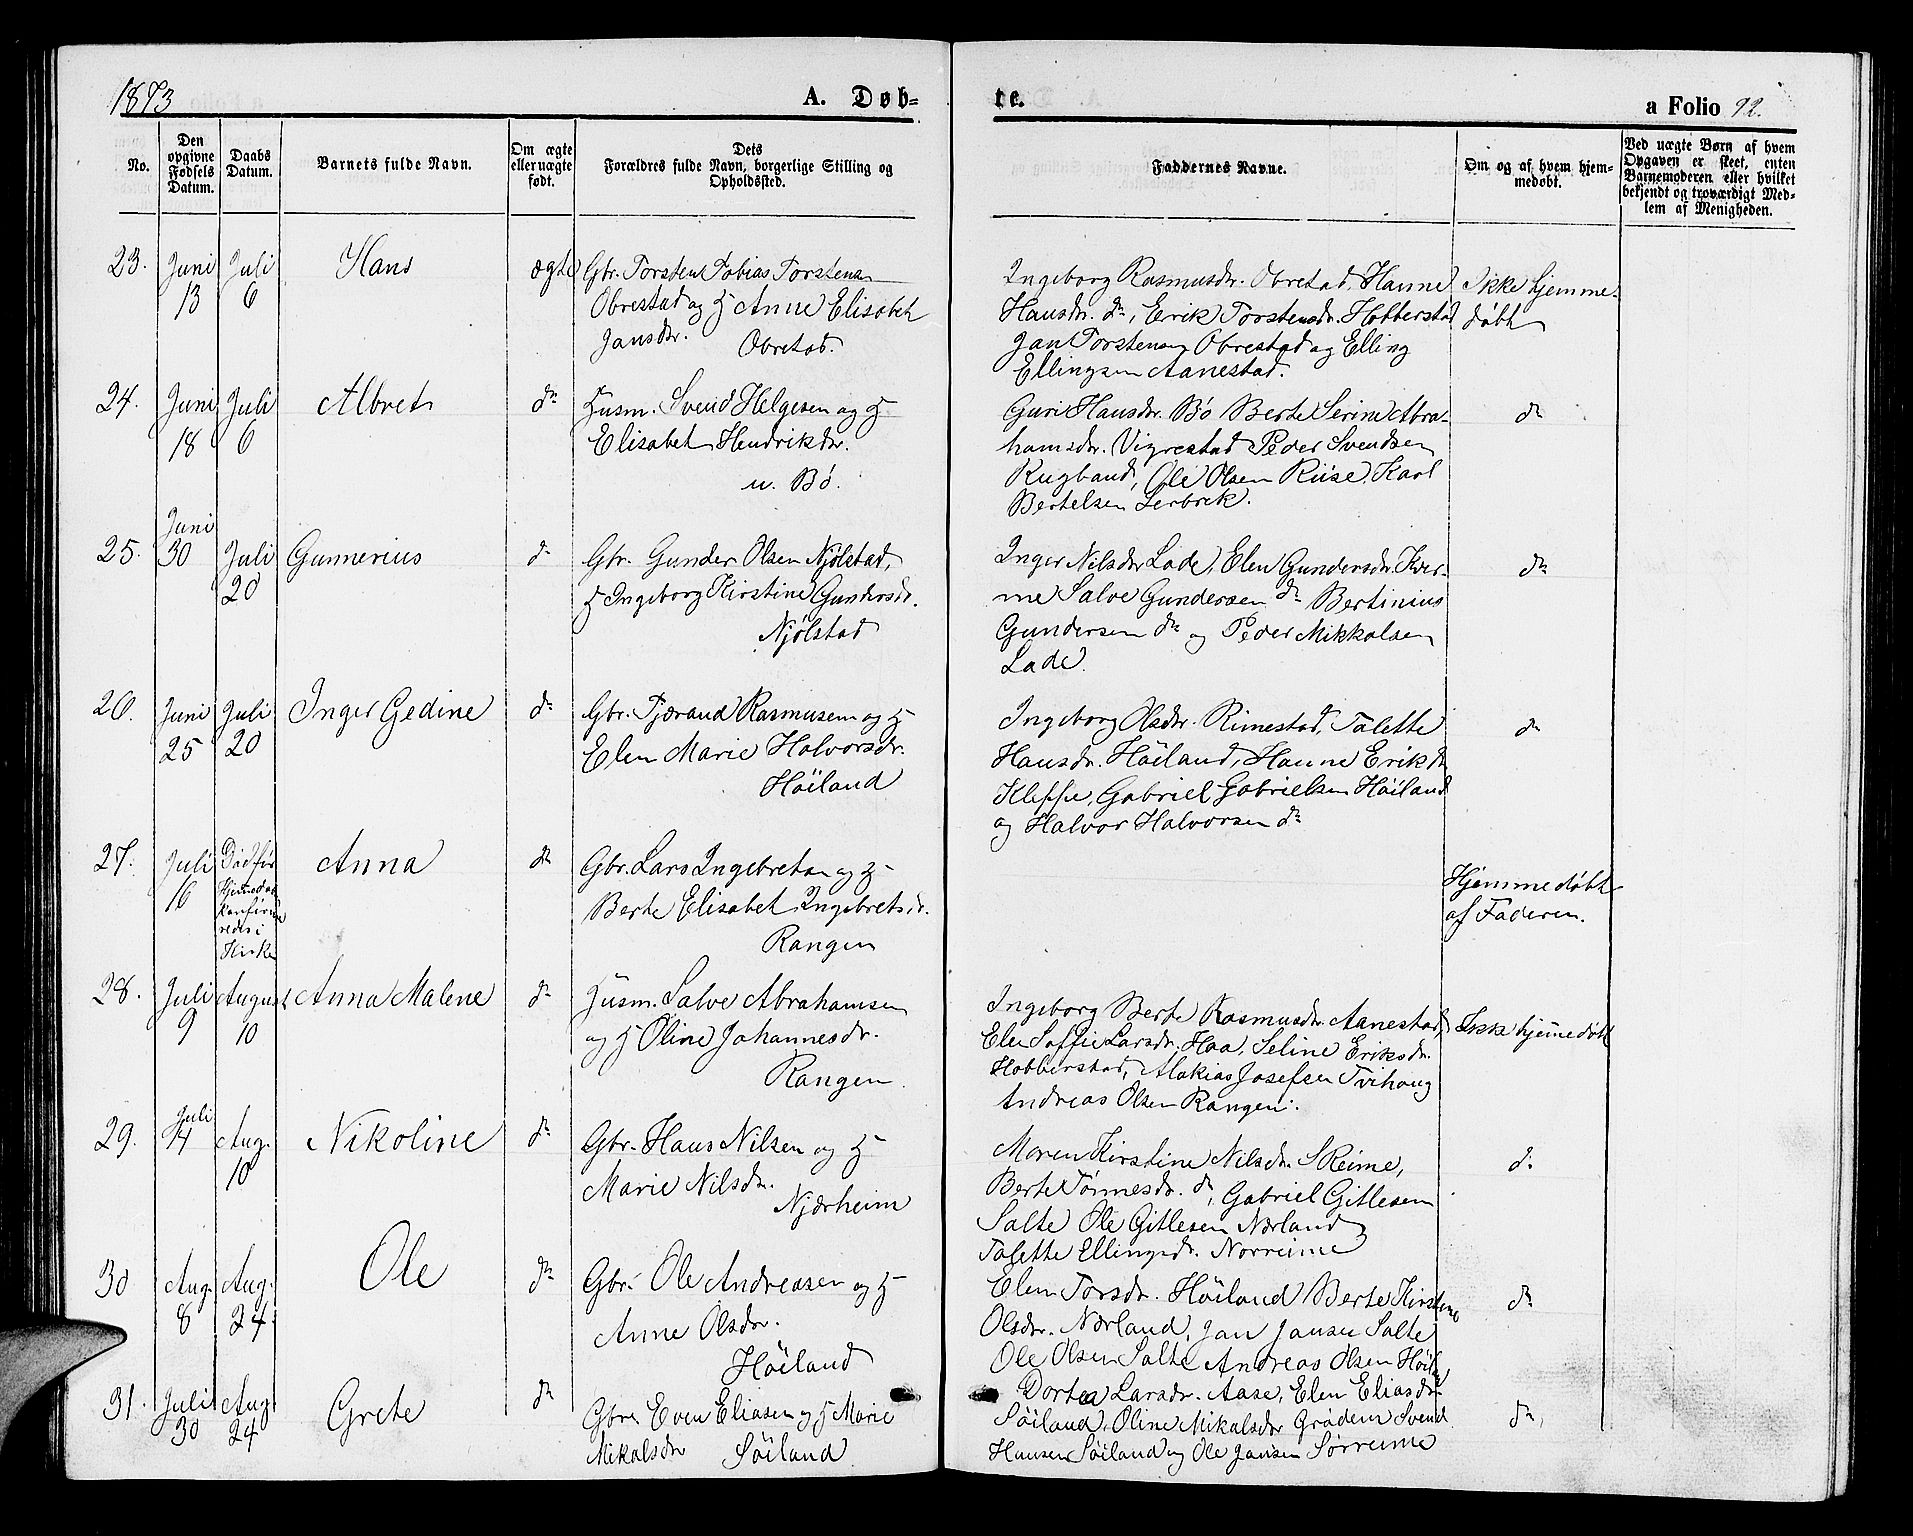 1873
A. Døb-
te.
a Folio 92.
No.
Den opgivne Fødsels Datum.
Daabs Datum.
Barnets fulde Navn.
Om ægte eller uægte født.
Dets Forældres fulde Navn, borgerlige Stilling og Opholdssted.
Faddernes Navne.
Om og af hvem hjemmedøbt.
Ved uægte Børn af hvem Opgaven er skeet, enten Barnemoderen eller hvilket bekjendt og troværdigt Medlem af Menigheden.
23. Juni 13 Juli 6 Hans ægte
Gbr. Torsten Tobias Torstensen
Obrestad og H Anne Elisabet
Jansdr. Obrestad.
Ingeborg Rasmusdr. Obrestad, Hanne
Hansdr. do, Erik Torstensdr. Hobberstad
Jan Torstensen Obrestad og Elling
Ellingsen Aanestad.
Ikke hjemme-
døbt
24. Juni 18 Juli 6 Albret do
Husm. Svend Helgesen og H
Elisabet Hendrikdr.
u. Bø.
Guri Hansdr. Bø Berte Serine Abra-
hamsdr. Vigrestad Peder Svendsen
Rugland, Ole Olsen Riise, Karl
Bertelsen Lerbrek.
do
25. Juni 30 Juli 20 Gunnerius do
Gbr. Gunder Olsen Njølstad,
H Ingeborg Kirstine Gundersdr.
Njølstad
Inger Nilsdr Lade, Elen Gundersdr. Kver-
me Salve Gundersen do Bertinius
Gundersen do og Peder Mikkalsen
Lade.
do
26. Juni 25 Juli 20 Inger Gedine do
Gbr. Tjærand Rasmusen og H
Elen Marie Halvorsdr.
Høiland
Ingeborg Olsdr. Rimestad, Talette
Hansdr. Høiland, Hanne Erikdr
Kleppe, Gabriel Gabrielsen Høiland
og Halvor Halvorsen do
do
27. Juli 16 Død før
Hjemdøb
konfirme
redes i
Kirken
Anna do
Gbr. Lars Ingebretsn og H
Berte Elisabet Ingebretsdr.
Rangen
Hjemmedøbt
af Faderen.
28. Juli 9 August 10 Anna Malene do
Husm. Salve Abrahamsen
og H Oline Johannesdr.
Rangen
Ingeborg Berte Rasmusdr. Aanestad,
Elen Soffie Larsdr. Haa, Seline Eriksdr.
Hobberstad, Malakias Josefsen Tvihaug
Andreas Olsen Rangen.
Ikke hjemmedøbt
29. Juli 4 Aug. 10 Nikoline do
Gbr. Hans Nilsen og H
Marie Nilsdr.
Njærheim
Maren Kirstine Nilsdr. SReime,
Berte Tønnesdr. do, Gabriel Gitlesen
Salte Ole Gitlesen Nærland
Talette Ellingsdr. Norreime
do
30 Aug. 8 Aug. 24 Ole do
Gbr. Ole Andreasen og H
Anne Olsdr.
Høiland
Elen Torsdr. Høiland Berte Kirstine
Olsdr. Nærland, Jan Jansen Salte
Ole Olsen Salte Andreas Olsen Høil
do
31. Juli 30 Aug 24 Grete do
Gbr. Even Eliasen og H Marie
Mikalsdr Søiland
Dortea Larsdr. Aase, Elen Eliasdr.
Søiland, Oline Mikalsdr Grødem Svend
Hansen Søiland og Ole Jansen Sørreime
do